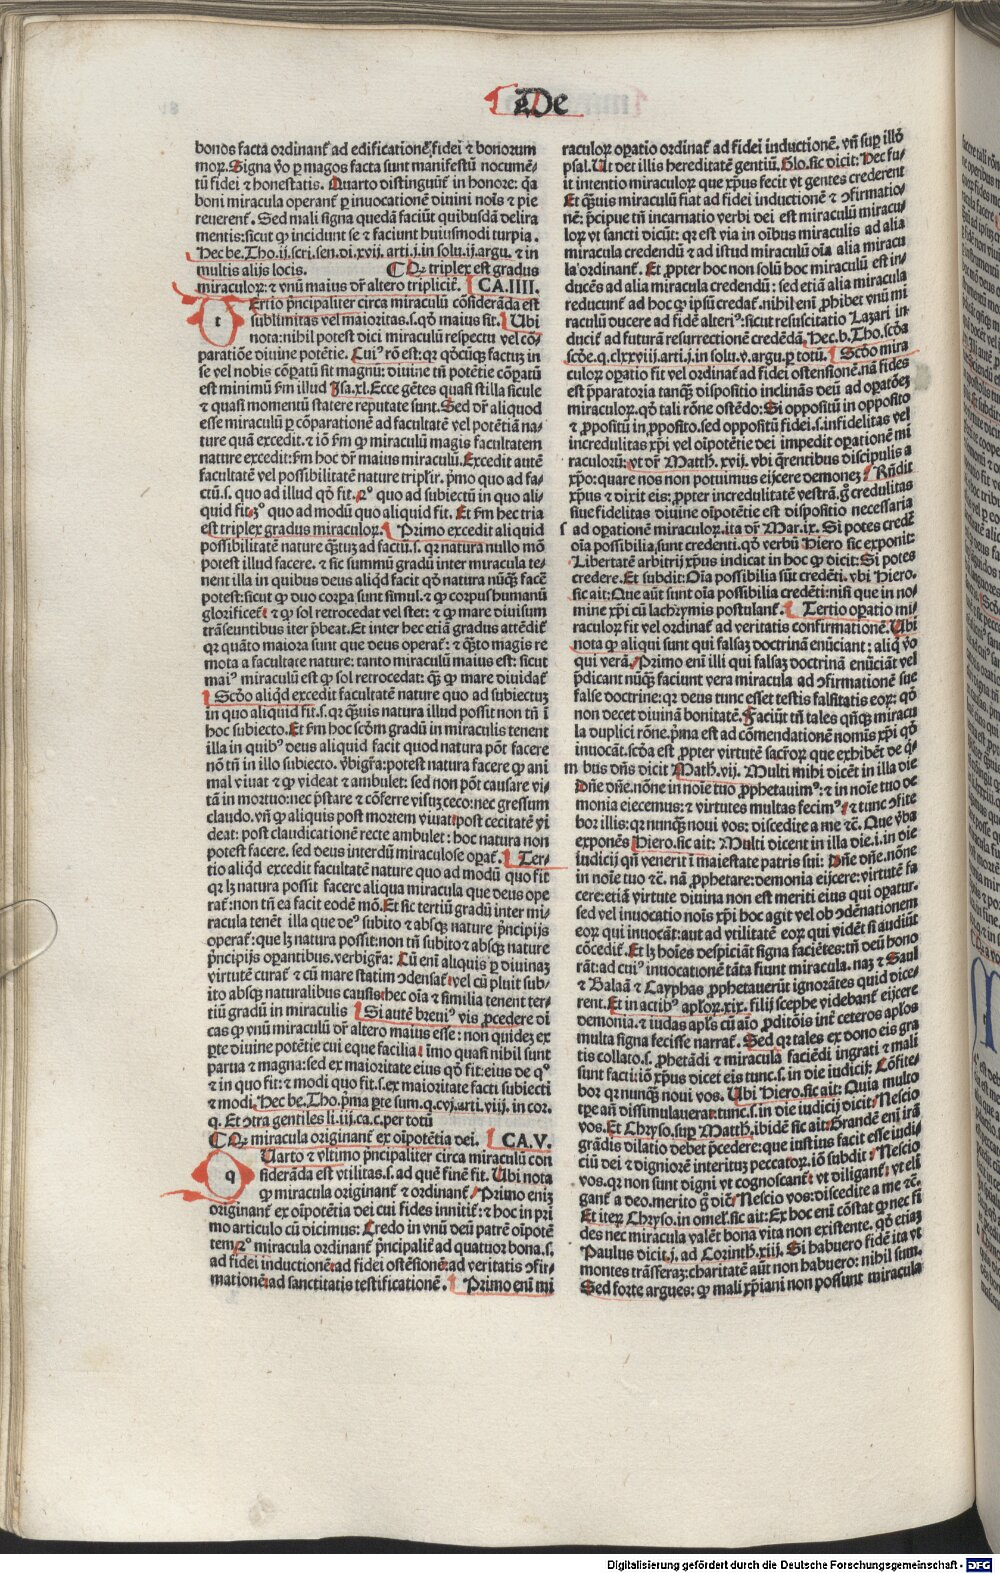 De
bonos facta ordinant᷑ ad edificationē fidei ⁊ bonorum
moꝝ. Signa v̊o ꝑ magos facta sunt manifestū nocumē⸗
tū fidei ⁊ honestatis. Quarto distinguūt᷑ in honore: q̄a
boni miracula operant᷑ ꝑ inuocationē diuini noīs ⁊ pie
reuerent᷑. Sed mali signa quedā faciūt quibusdā delira
mentis: sicut ꝙ incidunt se ⁊ faciunt huiusmodi turpia.
Hec be. Tho. ij. scri. sen. di. xvij. arti. j. in solu. ij. argu. ⁊ in
multis alijs locis. ¶ Qꝛ triplex est gradus
miraculoꝝ: ⁊ vnū maius dr̄ altero triplicit᷑. CA. IIII.
t Ertio pͥncipaliter circa miraculū cōsiderāda est
sublimitas vel maioritas. s. qd̓ maius sit. Ubi
nota: nihil potest dici miraculū respectu vel cō⸗
paratiōe diuine potētie. Cuiꝰ rō est: qꝛ qd̓cūqꝫ factuꝫ in
se vel nobis cōparatū sit magnū: diuine tn̄ potētie cōparatū
est minimū ẜm illud Isa. xl. Ecce gētes quasi stilla sicule
⁊ quasi momentū statere reputate sunt. Sed dr̄ aliquod
esse miraculū ꝑ cōparationē ad facultatē vel potētiā na⸗
ture quā excedit. ⁊ iō ẜm ꝙ miraculū magis facultatem
nature excedit: ẜm hoc dr̄ maius miraculū. Excedit autē
facultatē vel possibilitatē nature triplr̄. pͥmo quo ad fa⸗
ctū. s. quo ad illud qd̓ fit. ꝛͦ quo ad subiectū in quo ali⸗
quid fit. ꝫͦ quo ad modū quo aliquid fit. Et ẜm hec tria
est triplex gradus miraculoꝝ. Primo excedit aliquid
possibilitatē nature q̄ꝫtuꝫ ad factū. s. qꝛ natura nullo mō
potest illud facere. ⁊ sic summū gradū inter miracula te⸗
nent illa in quibus deus aliqd̓ facit qd̓ natura nūqꝫ facē
potest: sicut ꝙ duo corpa sunt simul. ⁊ ꝙ corpus humanū
glorificet᷑. ⁊ ꝙ sol retrocedat vel stet: ⁊ ꝙ mare diuisum
trāseuntibus iter pͥbeat. Et inter hec etiā gradus attēdit᷑
qꝛ quāto maiora sunt que deus operat᷑: ⁊ q̄ꝫto magis re
mota a facultate nature: tanto miraculū maius est: sicut
maiꝰ miraculū est ꝙ sol retrocedat: qꝫ ꝙ mare diuidat᷑
Scd̓o aliqd̓ excedit facultatē nature quo ad subiectuꝫ
in quo aliquid fit. s. qꝛ quis natura illud possit non tn̄ ī
hoc subiecto. Et ẜm hoc scd̓m gradū in miraculis tenent
illa in quibꝰ deus aliquid facit quod natura pōt facere
nō tn̄ in illo subiecto. v̓bigr̄a: potest natura facere ꝙ ani
mal viuat ⁊ ꝙ videat ⁊ ambulet: sed non pōt causare vi⸗
tā in mortuo: nec pͥstare ⁊ cōferre visuꝫ ceco: nec gressum
claudo. vn̄ ꝙ aliquis post mortem viuat: post cecitatē vi
deat: post claudicationē recte ambulet: hoc natura non
potest facere. sed deus interdū miraculose operat᷑. Ter⸗
tio aliqd̓ excedit facultatē nature quo ad modū quo fit
qꝛ lꝫ natura possit facere aliqua miracula que deus ope
rat᷑: non tn̄ ea facit eodē mō. Et sic tertiū gradū inter mi⸗
racula tenēt illa que deꝰ subito ⁊ absqꝫ nature pͥncipijs
operat᷑: que lꝫ natura possit: non tn̄ subito ⁊ absqꝫ nature
pͥncipijs oꝑantibus. verbigr̄a: Cū eni aliquis ꝑ diuinaꝫ
virtutē curat᷑ ⁊ cū mare statim ꝯdensat᷑: vel cū pluit sub⸗
ito absqꝫ naturalibus causis: hec oīa ⁊ similia tenent ter⸗
tiū gradū in miraculis Si autē breuiꝰ vis ꝓcedere di
cas ꝙ vnū miraculū dr̄ altero maius esse: non quideꝫ ex
ꝑte diuine potētie cui eque facilia: imo quasi nihil sunt
parua ⁊ magna: sed ex maioritate eius qd̓ fit: eius de qͦ
⁊ in quo fit: ⁊ modi quo fit. s. ex maioritate facti subiecti
⁊ modi. Hec be. Tho. pͥma ꝑte sum. q. cvj. arti. viij. in cor.
q. Et ꝯtra gentiles li. iij. ca. c. per totū
¶ Qꝛ miracula originant᷑ ex oīpotētia dei. CA. V.
q Uarto ⁊ vltimo pͥncipaliter circa miraculū con
siderāda est vtilitas. s. ad quē finē fit. Ubi nota
ꝙ miracula originant᷑ ⁊ ordinant᷑. Primo eniꝫ
originant᷑ ex oīpotētia dei cui fides innitit᷑: ⁊ hoc in pri
mo articulo cū dicimus: Credo in vnū deū patrē oīpotē
tem. ꝛͦ miracula ordinant᷑ pͥncipalit᷑ ad quatuor bona. s.
ad fidei inductionē: ad fidei ostēsionē: ad veritatis ꝯfir⸗
mationē: ad sanctitatis testificationē. Primo enī mi
raculoꝝ oꝑatio ordinat᷑ ad fidei inductionē. vn̄ suꝑ illo
psal. Ut det illis hereditatē gentiū. Glo. sic dicit: Hec fu⸗
it intentio miraculoꝝ que xp̄us fecit vt gentes crederent
Et q̄uis miraculū fiat ad fidei inductionē ⁊ ꝯfirmatio⸗
nē: pͥcipue tn̄ incarnatio verbi dei est miraculū miracu⸗
loꝝ vt sancti dicūt: qꝛ est via in oībus miraculis ad alia
miracula credendū ⁊ ad istud miraculū oīa alia miracu
la ordinant᷑. Et ꝓpter hoc non solū hoc miraculū est in⸗
ducēs ad alia miracula credendū: sed etiā alia miracula
reducunt᷑ ad hoc ꝙ ipsū credat᷑. nihil enī ꝓhibet vnū mi
raculū ducere ad fidē alteriꝰ: sicut resuscitatio Lazari in
ducit᷑ ad futurā resurrectionē credēdā. Hec. b. Tho. scd̓a
scd̓e. q. clxxviij. arti. j. in solu. v. argu. ꝑ totū. Scd̓o mira
culoꝝ oꝑatio fit vel ordinat᷑ ad fidei ostensionē. nā fides
est pͥparatoria tanqꝫ dispositio inclināns deū ad oꝑatōeꝫ
miraculoꝝ. qd̓ tali rōne ostēdo: Si oppositū in opposito
⁊ ꝓpositū in ꝓposito. sed oppositū fidei. s. infidelitas vel
incredulitas xp̄i vel oīpotētie dei impedit oꝑationē mi
raculorū: vt dr̄ Matth. xvij. vbi q̄rentibus discipulis a
xp̄o: quare nos non potuimus eijcere demoneꝫ? Rn̄dit
xp̄us ⁊ dixit eis: ꝓpter incredulitatē vestrā. ḡ credulitas
siue fidelitas diuine oīpotētie est dispositio necessaria
ad oꝑationē miraculoꝝ. ita dr̄ Mar. ix. Si potes credē
oīa possibilia sunt credenti. qd̓ verbū Hiero sic exponit:
Libertatē arbitrij xp̄us indicat in hoc ꝙ dicit: Si potes
credere. Et subdit: Oīa possibilia sūt credēti. vbi Hiero.
sic ait: Que aūt sunt oīa possibilia credēti: nisi que in no⸗
mine xp̄i cū lachrymis postulant᷑. Tertio oꝑatio mi⸗
raculoꝝ fit vel ordinat᷑ ad veritatis confirmationē. Ubi
nota ꝙ aliqui sunt qui falsaꝫ doctrinā enūciant: aliq̄ v̊o
qui verā. Primo enī illi qui falsaꝫ doctrinā enūciāt vel
pͥdicant nūqꝫ faciunt vera miracula ad ꝯfirmationē sue
false doctrine: qꝛ deus tunc esset testis falsitatis eoꝝ: qd̓
non decet diuinā bonitatē. Faciūt tn̄ tales qn̄qꝫ miracu
la duplici rōne. pͥma est ad cōmendationē nomis xp̄i qd̓
inuocāt. scd̓a est ꝓpter virtutē sacr̄oꝝ que exhibēt de q̄⸗
bus dn̄s dicit Math. vij. Multi mihi dicēt in illa die
Dn̄e dn̄e. nōne in noīe tuo ꝓphetauimꝰ: ⁊ in noīe tuo de
monia eiecemus: ⁊ virtutes multas fecimꝰ: ⁊ tunc ꝯfite
bor illis: qꝛ nunqꝫ noui vos: discedite a me ⁊c̄. Que v̓ba
exponēs Hiero. sic ait: Multi dicent in illa die. i. in die
iudicij qn̄ venerit ī maiestate patris sui: Dn̄e dn̄e. nōne
in noīe tuo ⁊c̄. nā ꝓphetare: demonia eijcere: virtutē fa
cere: etiā virtute diuina non est meriti eius qui oꝑatur.
sed vel inuocatio noīs xp̄i hoc agit vel ob ꝯdēnationem
eoꝝ qui inuocāt: aut ad vtilitatē eoꝝ qui vidēt si audiūt
cōcedit᷑. Et lꝫ hoīes despiciāt signa faciētes: tn̄ deū hono
rāt: ad cuiꝰ inuocationē tāta fiunt miracula. naꝫ ⁊ Saul
⁊ Balaā ⁊ Cayphas ꝓphetauerūt ignorātes quid dice⸗
rent. Et in actibꝰ apl̓oꝝ. xix. filij scephe videbant᷑ eijcere
demonia. ⁊ iudas apl̓s cū aīo ꝓditōis int᷑ ceteros apl̓os
multa signa fecisse narrat᷑. Sed qꝛ tales ex dono eis gra
tis collato. s. ꝓphetādi ⁊ miracula faciēdi ingrati ⁊ mali
sunt facti: iō xp̄us dicet eis tunc. s. in die iudicij: Cōfite⸗
bor qꝛ nunqꝫ noui vos. Ubi Hiero. sic ait: Quia multo
tꝑe an̄ dissimulauerat. tunc. s. in die iudicij dicit: Nescio
vos. Et Chryso. suꝑ Matth. ibidē sic ait: Grandē enī irā
grādis dilatio debet pͥcedere: que iustius facit esse iudi⸗
ciū dei ⁊ digniorē interituꝫ peccatoꝝ. iō subdit: Nescio
vos. qꝛ non sunt digni vt cognoscant᷑: vt diligant᷑: vt eli
gant᷑ a deo. merito ḡ dic̄: Nescio vos: discedite a me ⁊c̄.
Et iteꝝ Chryso. in omel̓. sic ait: Ex hoc enī cōstat ꝙ nec fi
des nec miracula valēt bona vita non existente. qd̓ etiaꝫ
Paulus dicit. j. ad Corinth. xiij. Si habuero fidē ita vt
montes trāsferaꝫ: charitatē aūt non habuero: nihil sum.
Sed forte argues: ꝙ mali xp̄iani non possunt miracula
Digitalisierung gefördert durch die Deutsche Forschungsgemeinschaft - DFG